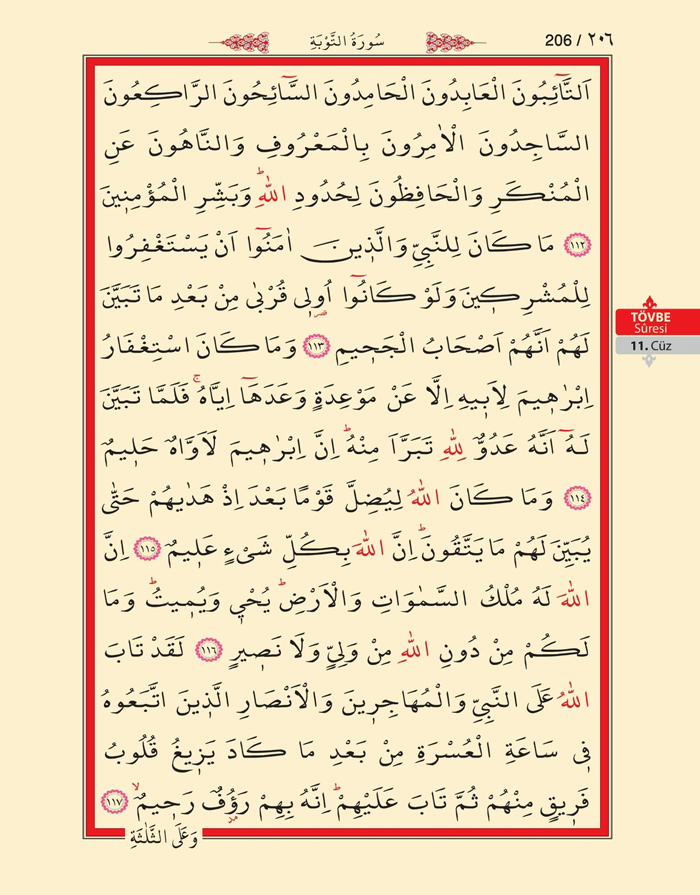 سُورَةُ التَّوْبَةِ
206 / ٢٠٦
اَلتَّٓائِبُونَ الْعَابِدُونَ الْحَامِدُونَ السَّٓائِحُونَ الرَّاكِعُونَ
السَّاجِدُونَ الْاٰمِرُونَ بِالْمَعْرُوفِ وَالنَّاهُونَ عَنِ
الْمُنْكَرِ وَالْحَافِظُونَ لِحُدُودِ اللّٰهِۜ وَبَشِّرِ الْمُؤْمِن۪ينَ
﴿١١٢﴾ مَا كَانَ لِلنَّبِيِّ وَالَّذ۪ينَ اٰمَنُٓوا اَنْ يَسْتَغْفِرُوا
لِلْمُشْرِك۪ينَ وَلَوْ كَانُٓوا اُو۬ل۪ي قُرْبٰى مِنْ بَعْدِ مَا تَبَيَّنَ
لَهُمْ اَنَّهُمْ اَصْحَابُ الْجَح۪يمِ ﴿١١٣﴾ وَمَا كَانَ اسْتِغْفَارُ
اِبْرٰه۪يمَ لِاَب۪يهِ اِلَّا عَنْ مَوْعِدَةٍ وَعَدَهَٓا اِيَّاهُۚ فَلَمَّا تَبَيَّنَ
لَهُٓ اَنَّهُ عَدُوٌّ لِلّٰهِ تَبَرَّاَ مِنْهُۜ اِنَّ اِبْرٰه۪يمَ لَاَوَّاهٌ حَل۪يمٌ
﴿١١٤﴾ وَمَا كَانَ اللّٰهُ لِيُضِلَّ قَوْمًا بَعْدَ اِذْ هَدٰيهُمْ حَتّٰى
يُبَيِّنَ لَهُمْ مَا يَتَّقُونَۜ اِنَّ اللّٰهَ بِكُلِّ شَيْءٍ عَل۪يمٌ ﴿١١٥﴾ اِنَّ
اللّٰهَ لَهُ مُلْكُ السَّمٰوَاتِ وَالْاَرْضِۜ يُحْي۪ وَيُم۪يتُۜ وَمَا
لَكُمْ مِنْ دُونِ اللّٰهِ مِنْ وَلِيٍّ وَلَا نَص۪يرٍ ﴿١١٦﴾ لَقَدْ تَابَ
اللّٰهُ عَلَى النَّبِيِّ وَالْمُهَاجِر۪ينَ وَالْاَنْصَارِ الَّذ۪ينَ اتَّبَعُوهُ
ف۪ي سَاعَةِ الْعُسْرَةِ مِنْ بَعْدِ مَا كَادَ يَز۪يغُ قُلُوبُ
فَر۪يقٍ مِنْهُمْ ثُمَّ تَابَ عَلَيْهِمْۜ اِنَّهُ بِهِمْ رَؤُ۫فٌ رَح۪يمٌۙ ﴿١١٧﴾
وَعَلَى الثَّلٰثَةِ
TÖVBE
Sûresi
11. Cüz